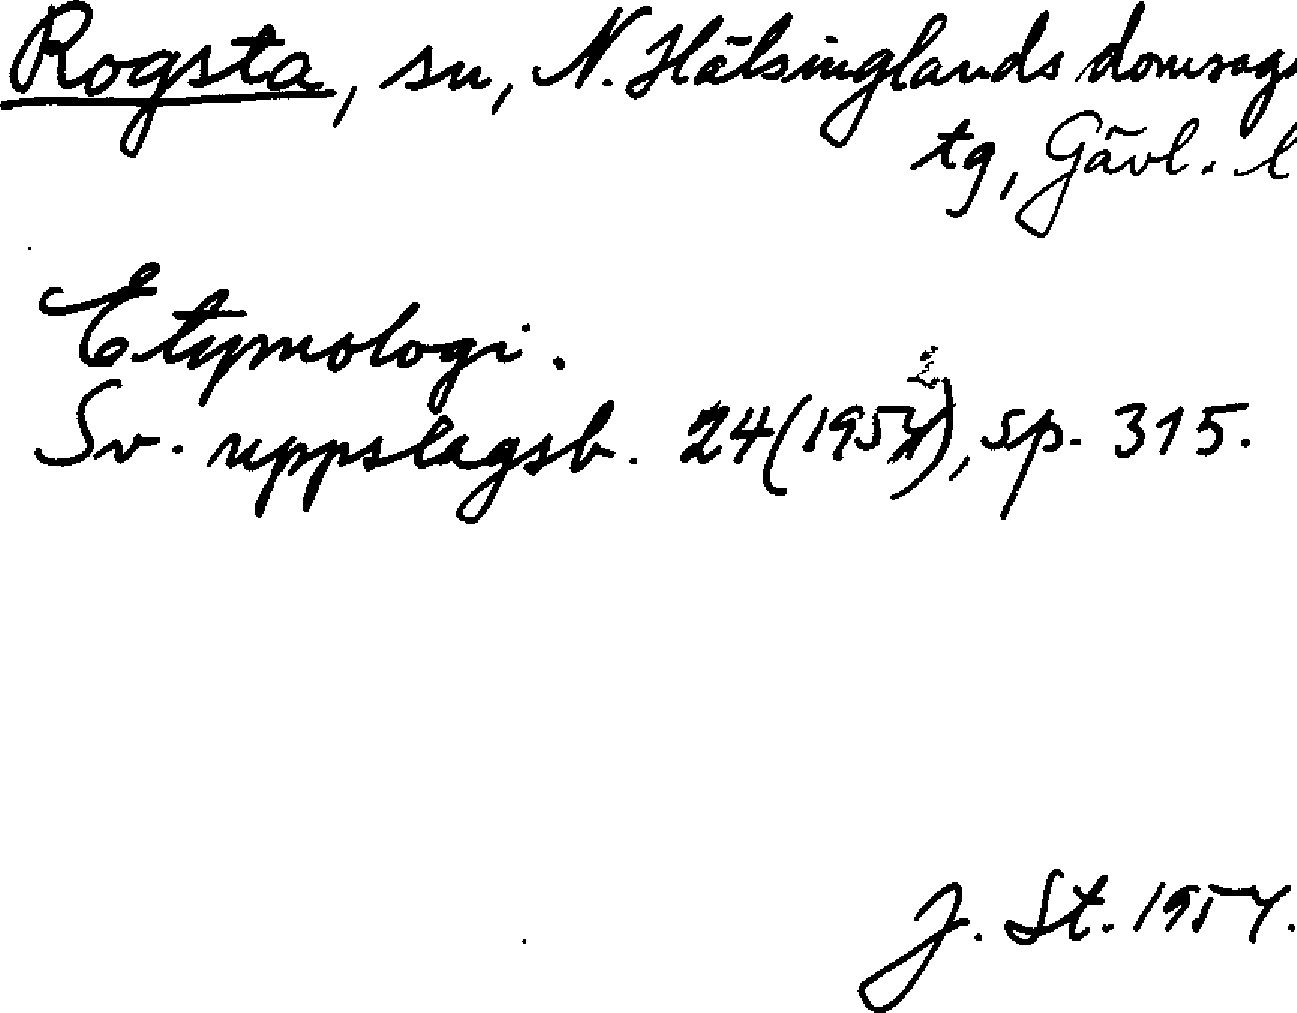 Rogsta, sn, N. Hälsinglands domsags
tg, Gävl. l
Etymologi.
Sv. uppslagsb. 24 (1952), sp. 315.
J. St. 1954.